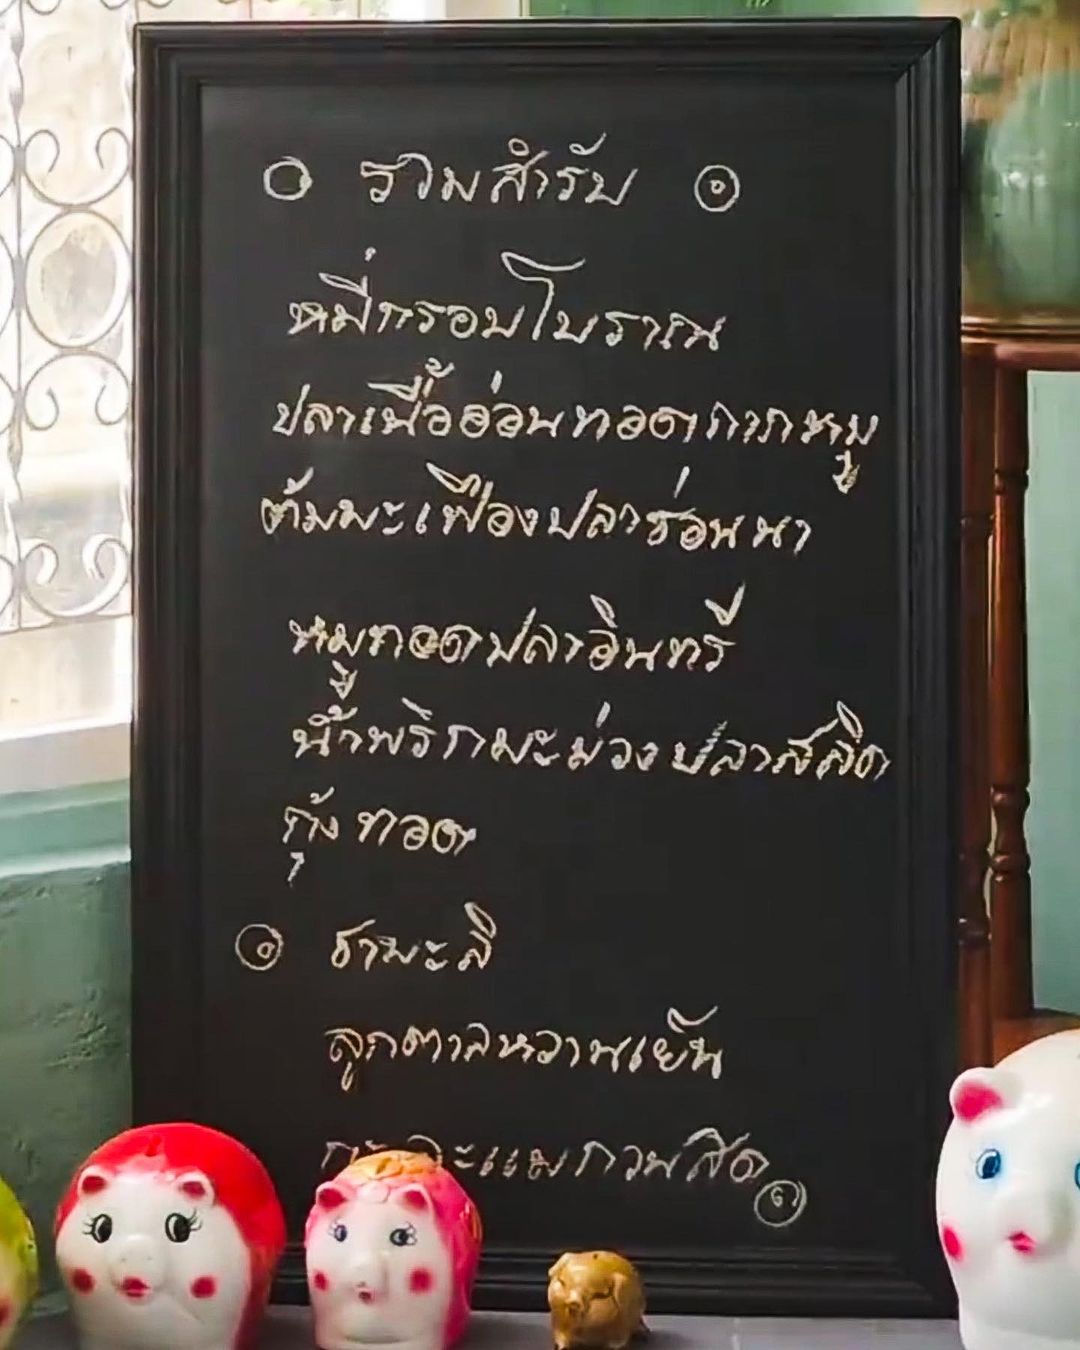 รวมสำรับ
หมี่กรอบโบราณ
ปลาเนื้ออ่อนทอดกากหมู
ต้มมะเฟืองปลาช่อนนา
หมูทอดปลาอินทรี
น้ำพริกมะม่วงปลาสลิด
กุ้งทอด
ชามะลิ
ลูกตาลหวานเย็น
กวนสด